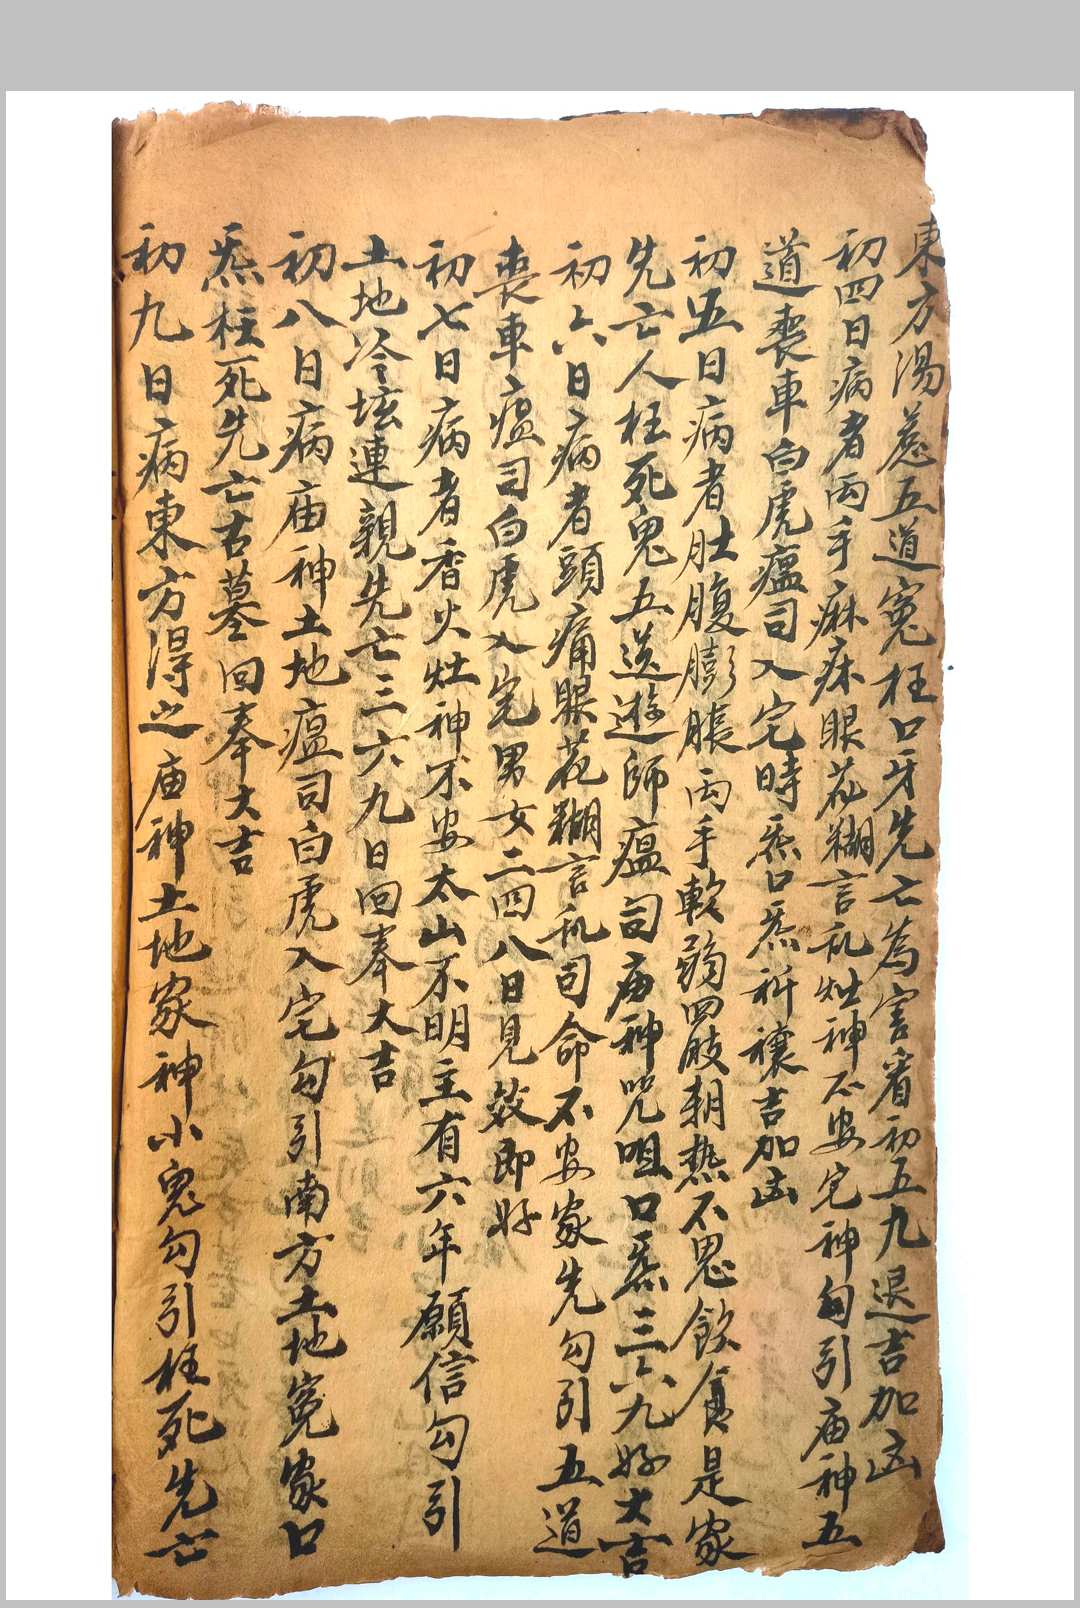 東方湯惹五道冤枉口牙先亡為害看初五九退吉加凶
初四日病者両手麻床眼花糊言乱灶神不安宅神勾引庙神五
道丧車白虎瘟司入宅時炁口炁祈禳吉加凶
初五日病者肚腹膨脹両手軟弱四肢朝熱不思飲食是家
先亡人枉死鬼五送遊師瘟司庙神咒咀口炁三六九好大吉
初六日病者頭痛眼花糊言乱司命不安家先勾引五道
丧車瘟司白虎入宅男女二四八日見效即好
初七日病者香火灶神不安太山不明主有六年願信勾引
土地冷坛連親先亡三六九日回奉大吉
初八日病庙神土地瘟司白虎入宅勾引南方土地冤家口
炁枉死先亡古墓回奉大吉
初九日病東方得之庙神土地家神小鬼勾引枉死先亡